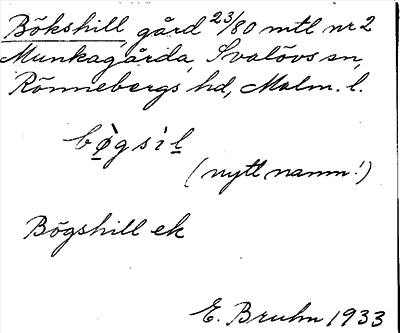 Bökshill, gård 23/80 mtl nr 2
Munkagårda, Svalövs sn,
Rönnebergs hd, Malm. l.
bø̀gsìl
(nytt namn!)
Bögshill ek
E. Bruhn 1933